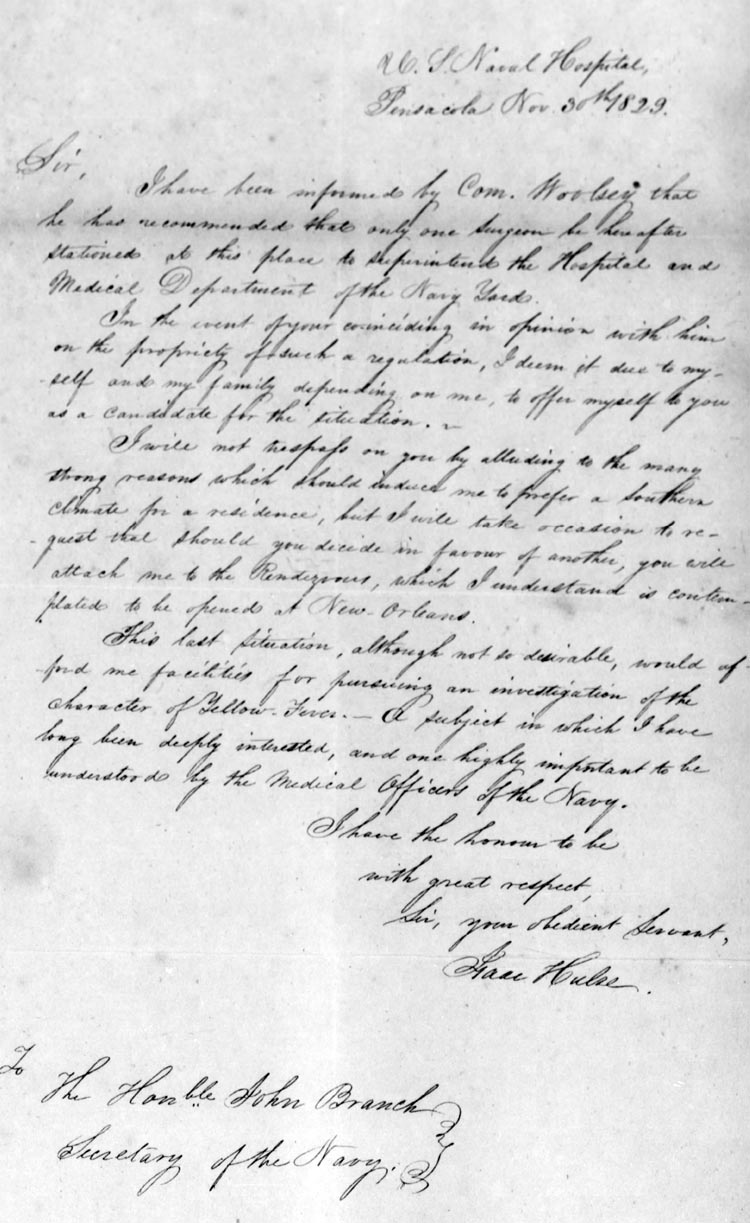 U. S. Naval Hospital,
Pensacola Nov. 30th 1829.
Sir,
I have been informed by Com. Woolsey that
he has recommended that only one surgeon be hereafter
stationed at this place to superintend the Hospital and
Medical Department of the Navy Yard.
In the event of your coinciding in opinion with him
on the propriety of such a regulation, I deem it due to my-
-self and my family depending on me, to offer myself to you
as a candidate for the situation. ~
I will not trespass on you by alluding to the many
strong reasons which should induce me to prefer a Southern
climate for a residence, but I will take occasion to re-
-quest that should you decide in favour of another, you will
attach me to the Rendezvous, which I understand is contem-
-plated to be opened at New-Orleans.
This last situation, although not so desirable, would af-
-ford me facilities for pursuing an investigation of the
character of Yellow-Fever. — A subject in which I have
long been deeply interested, and one highly important to be
understood by the Medical Officers of the Navy.
I have the honour to be
with great respect,
Sir, your obedient Servant,
Isaac Hulse.
To
The Honble John Branch
Secretary of the Navy.